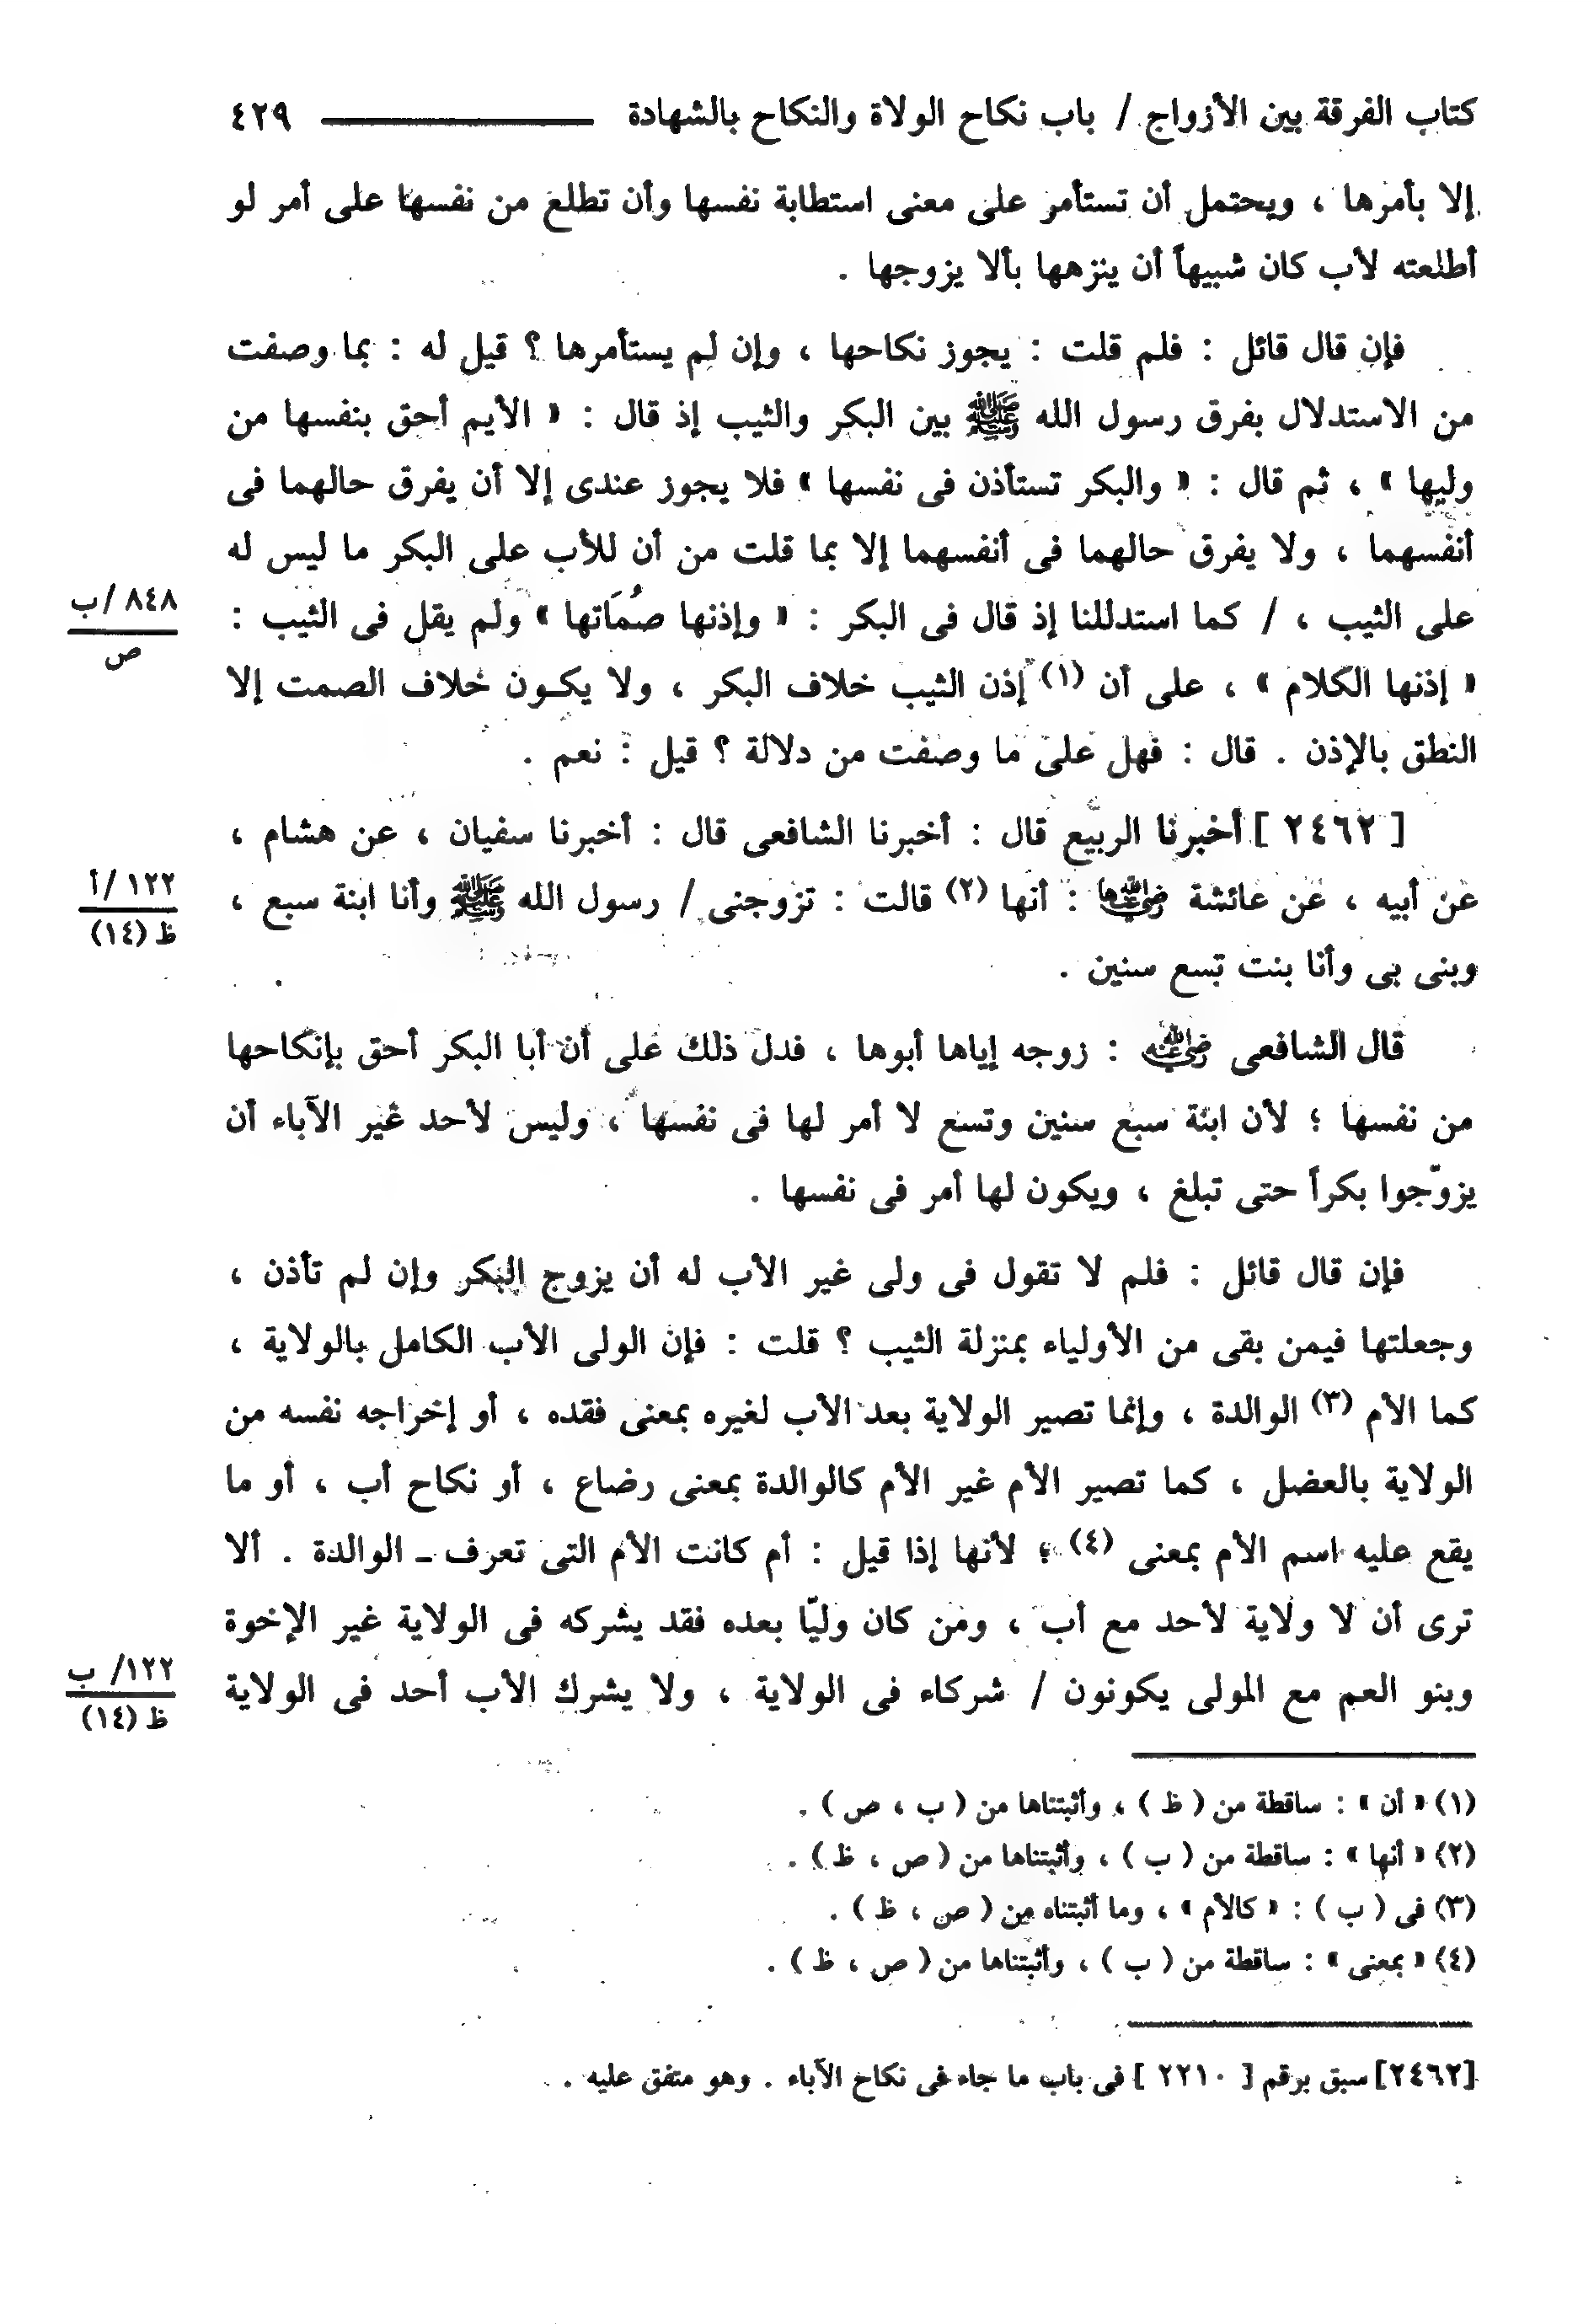 كتاب الفرقة بين الأزواج / باب نكاح الولاة والنكاح بالشهادة ـــــــــ ٤٢٩
إلا بأمرها ، ويحتمل أن تستأمر على معنى استطابة نفسها وأن تطلع من نفسها على أمر لو
أطلعته لأب كان شبيهاً أن ينزهها بألا يزوجها .
فإن قال قائل : فلم قلت : يجوز نكاحها ، وإن لم يستأمرها ؟ قيل له : بما وصفت
من الاستدلال بفرق رسول الله ﷺ بين البكر والثيب إذ قال : « الأيم أحق بنفسها من
وليها » ، ثم قال : « والبكر تستأذن فى نفسها » فلا يجوز عندى إلا أن يفرق حالهما فى
أنفسهما ، ولا يفرق حالهما فى أنفسهما إلا بما قلت من أن للأب على البكر ما ليس له
على الثيب ، / كما استدللنا إذ قال فى البكر : « وإذنها صُمَاتها » ولم يقل فى الثيب :
٨٤٨ /ب
ص
« إذنها الكلام » ، على أن (١) إذن الثيب خلاف البكر ، ولا يكـون خلاف الصمت إلا
النطق بالإذن . قال : فهل على ما وصفت من دلالة ؟ قيل : نعم .
[ ٢٤٦٢ ] أخبرنا الربيع قال : أخبرنا الشافعى قال : أخبرنا سفيان ، عن هشام ،
عن أبيه ، عن عائشة رضي الله عنها : أنها (٢) قالت : تزوجنى / رسول الله ﷺ وأنا ابنة سبع ،
١٢٢ /أ
ظ (١٤)
وبنى بى وأنا بنت تسع سنين .
قال الشافعى رضي الله عنه : زوجه إياها أبوها ، فدل ذلك على أن أبا البكر أحق بإنكاحها
من نفسها ؛ لأن ابنة سبع سنين وتسع لا أمر لها فى نفسها ، وليس لأحد غير الآباء أن
يزوّجوا بكراً حتى تبلغ ، ويكون لها أمر فى نفسها .
فإن قال قائل : فلم لا تقول فى ولى غير الأب له أن يزوج البكر وإن لم تأذن ،
وجعلتها فيمن بقى من الأولياء بمنزلة الثيب ؟ قلت : فإن الولى الأب الكامل بالولاية ،
كما الأم (٣) الوالدة ، وإنما تصير الولاية بعد الأب لغيره بمعنى فقده ، أو إخراجه نفسه من
الولاية بالعضل ، كما تصير الأم غير الأم كالوالدة بمعنى رضاع ، أو نكاح أب ، أو ما
يقع عليه اسم الأم بمعنى (٤) ؛ لأنها إذا قيل : أم كانت الأم التى تعرف ـ الوالدة . ألا
ترى أن لا ولاية لأحد مع أب ، ومن كان وليّا بعده فقد يشركه فى الولاية غير الإخوة
وبنو العم مع المولى يكونون / شركاء فى الولاية ، ولا يشرك الأب أحد فى الولاية
١٢٢/ ب
ظ (١٤)
(١) « أن » : ساقطة من ( ظ ) ، وأثبتناها من ( ب ، ص ) .
(٢) « أنها » : ساقطة من ( ب ) ، وأثبتناها من ( ص ، ظ ) .
(٣) فى ( ب ) : « كالأم » ، وما أثبتناه من ( ص ، ظ ) .
(٤) « بمعنى » : ساقطة من ( ب ) ، وأثبتناها من ( ص ، ظ ) .
[٢٤٦٢] سبق برقم [ ٢٢١٠ ] فى باب ما جاء فى نكاح الآباء . وهو متفق عليه .